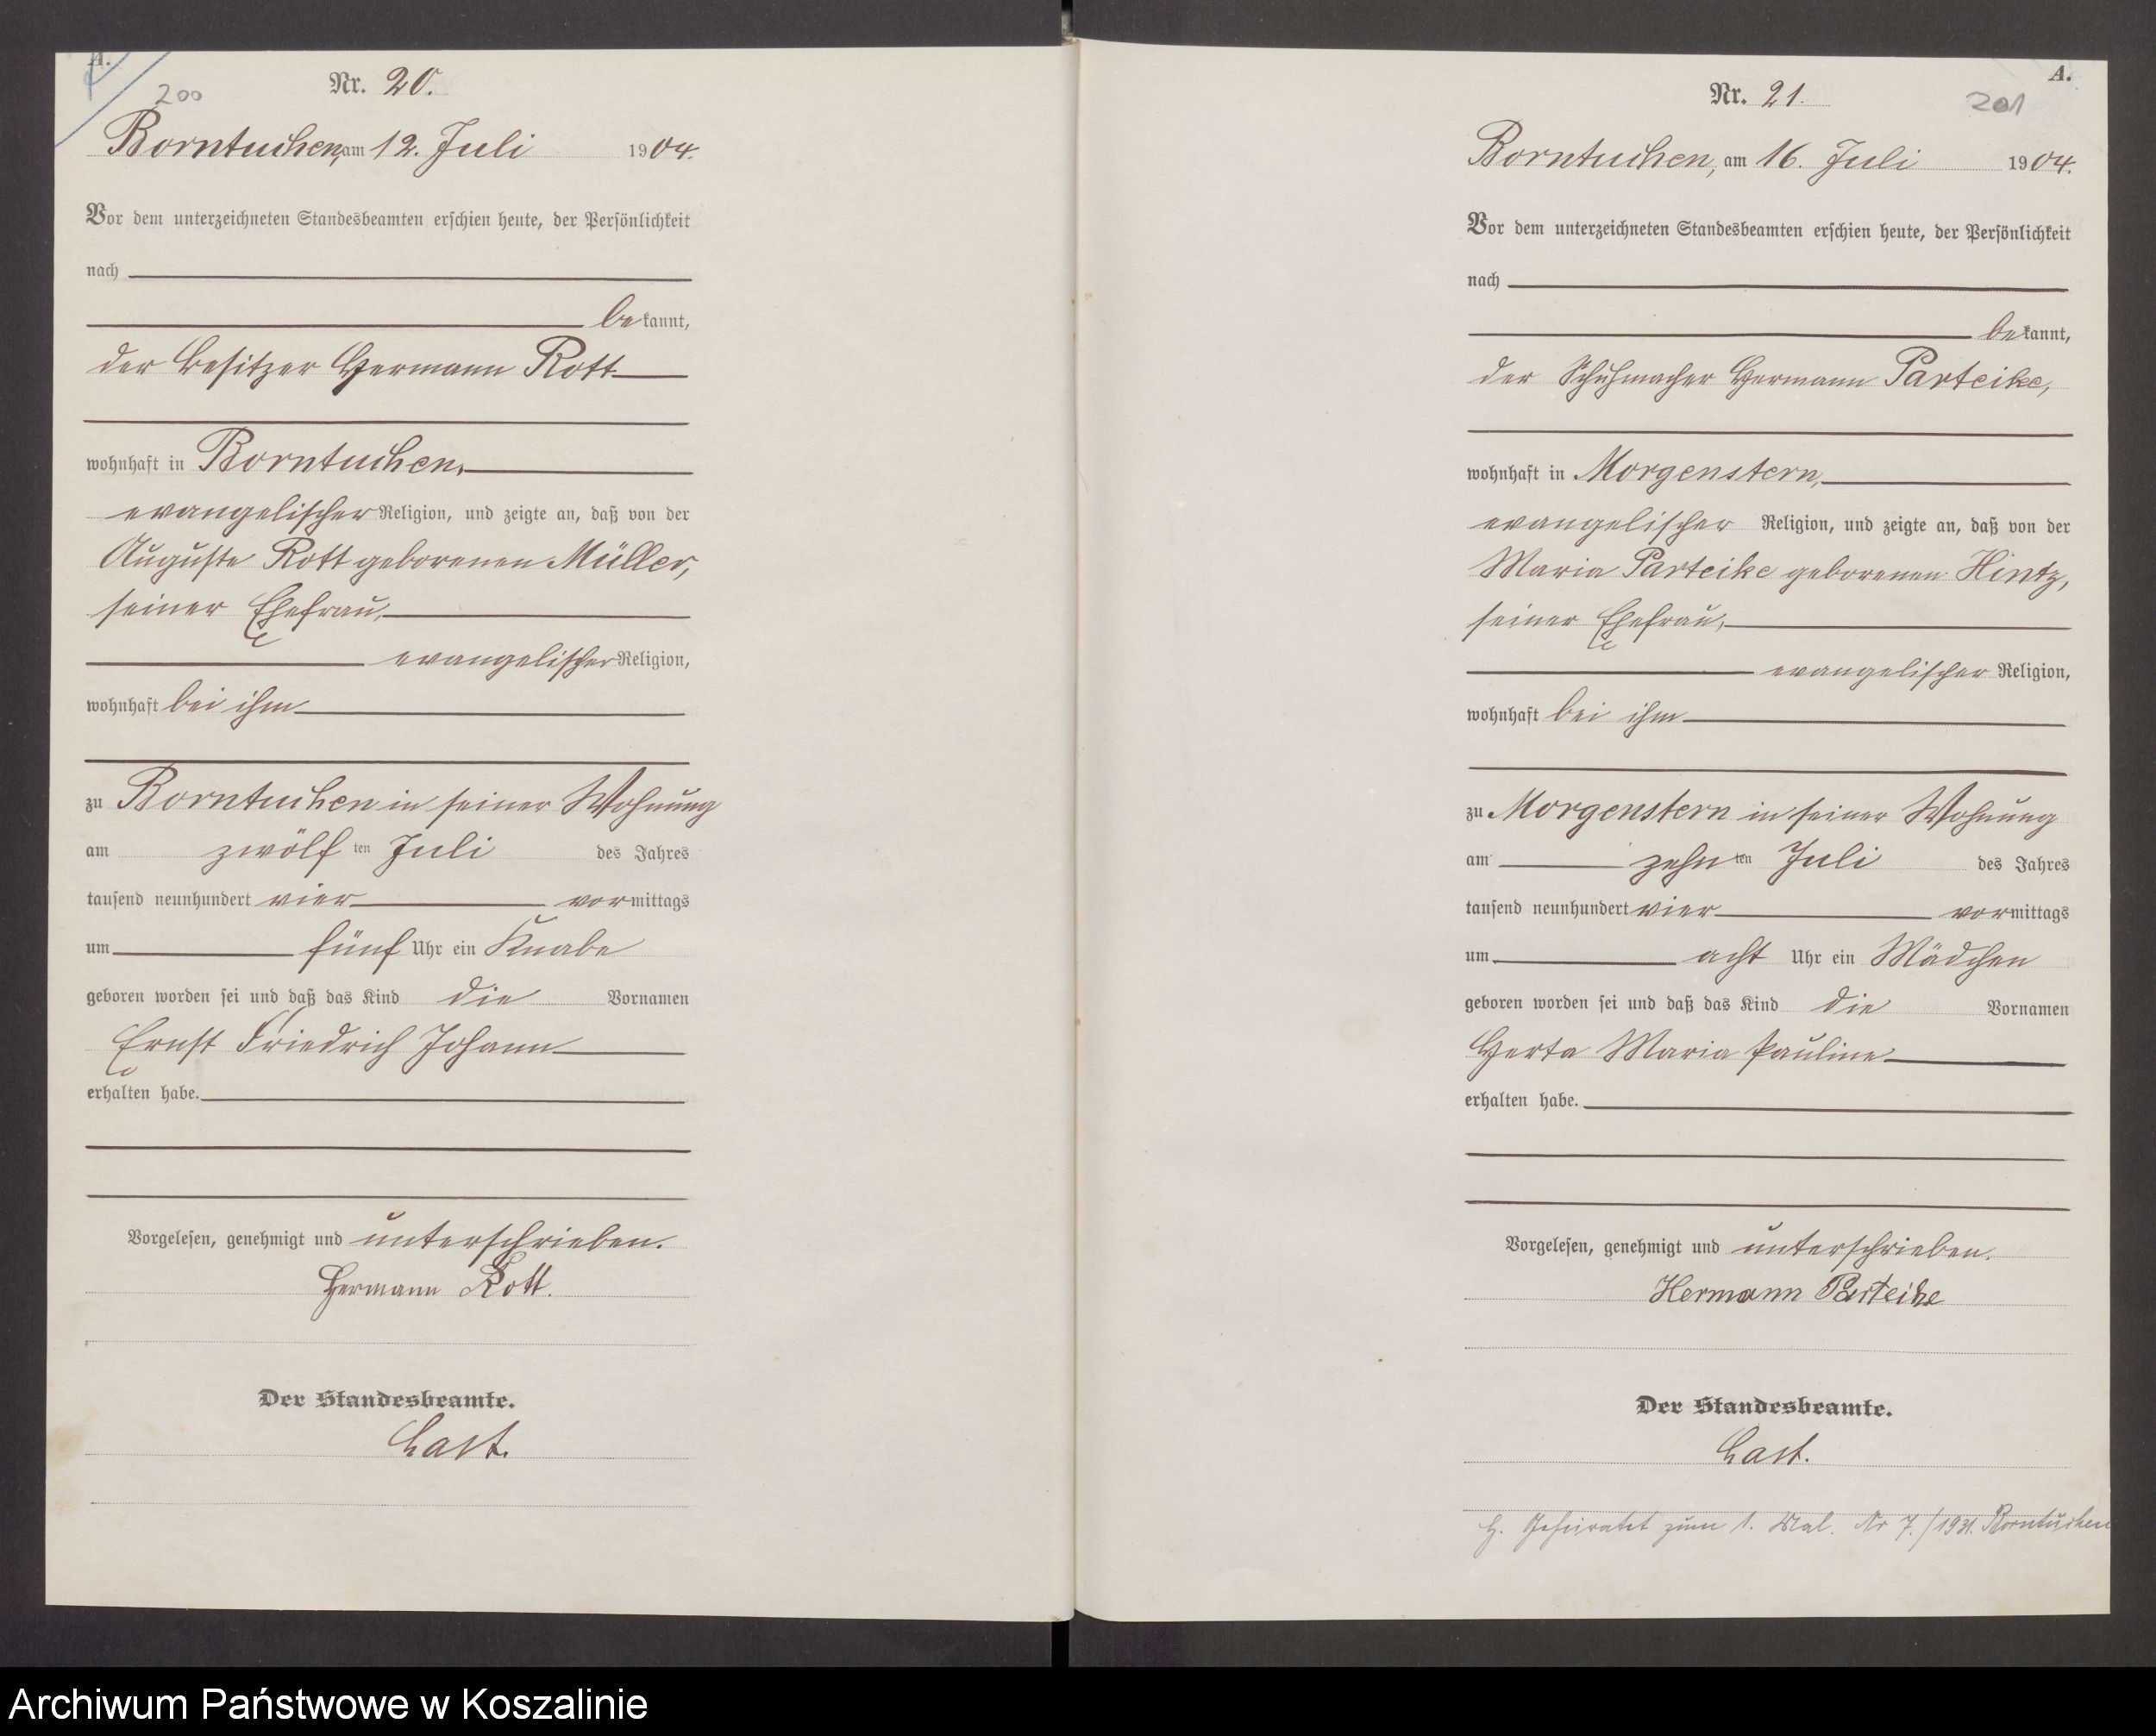 A.
Nr. 20.
200
Borntuchen, am 12. Juli 1904.
Vor dem unterzeichneten Standesbeamten erschien heute, der Persönlichkeit
nach
bekannt,
der Besitzer Hermann Rott
wohnhaft in Borntuchen,
evangelischer Religion, und zeigte an, daß von der
Auguste Rott geborenen Müller,
seiner Ehefrau,
evangelischer Religion,
wohnhaft bei ihm
zu Borntuchen in seiner Wohnung
am zwölften Juli des Jahres
tausend neunhundert vier vormittags
um fünf Uhr ein Knabe
geboren worden sei und daß das Kind die Vornamen
Ernst Friedrich Johann
erhalten habe.
Vorgelesen, genehmigt und unterschrieben.
Hermann Rott.
Der Standesbeamte.
Last.
A.
Nr. 21.
201
Borntuchen, am 16. Juli 1904.
Vor dem unterzeichneten Standesbeamten erschien heute, der Persönlichkeit
nach
bekannt,
der Schuhmacher Hermann Parteike,
wohnhaft in Morgenstern,
evangelischer Religion, und zeigte an, daß von der
Maria Parteike geborenen Hintz,
seiner Ehefrau,
evangelischer Religion,
wohnhaft bei ihm
zu Morgenstern in seiner Wohnung
am zehnten Juli des Jahres
tausend neunhundert vier vormittags
um acht Uhr ein Mädchen
geboren worden sei und daß das Kind die Vornamen
Herta Maria Pauline
erhalten habe.
Vorgelesen, genehmigt und unterschrieben.
Hermann Parteike
Der Standesbeamte.
Last.
Geheiratet zum 1. Mal. Nr 7./1931. Borntuchen
Archiwum Państwowe w Koszalinie